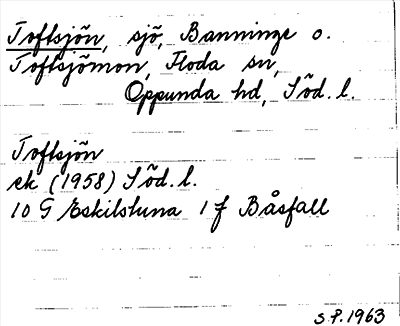 Toftsjön, sjö, Banninge o.
Toftsjömon, Floda sn,
Oppunda hd, Söd. l.
Toftsjön
ek (1958) Söd. l.
10 G Eskilstuna 1 f Båsfall
S P. 1963